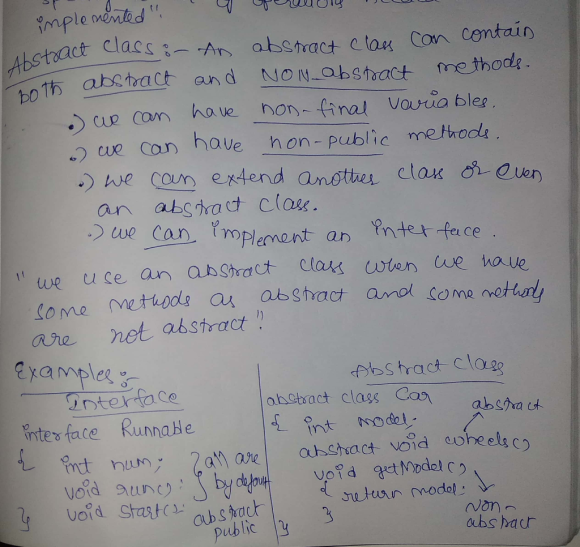 of operations
implemented".
Abstract class :- An abstract class can contain
both abstract and NON-abstract methods.
.) we can have non-final variables.
.) we can have non-public methods.
.) we can extend another class or even
an abstract class.
.) we can implement an interface.
"we use an abstract class when we have
some methods as abstract and some methods
are not abstract".
Examples :-
Interface
interface Runnable
{ int num;
void run();
void start();
}
} all are
by default
abstract
public
Abstract Class
abstract class Car
{ int model;
abstract
abstract void wheels()
void getModel()
{ return model;
}
Non-
abstract
}